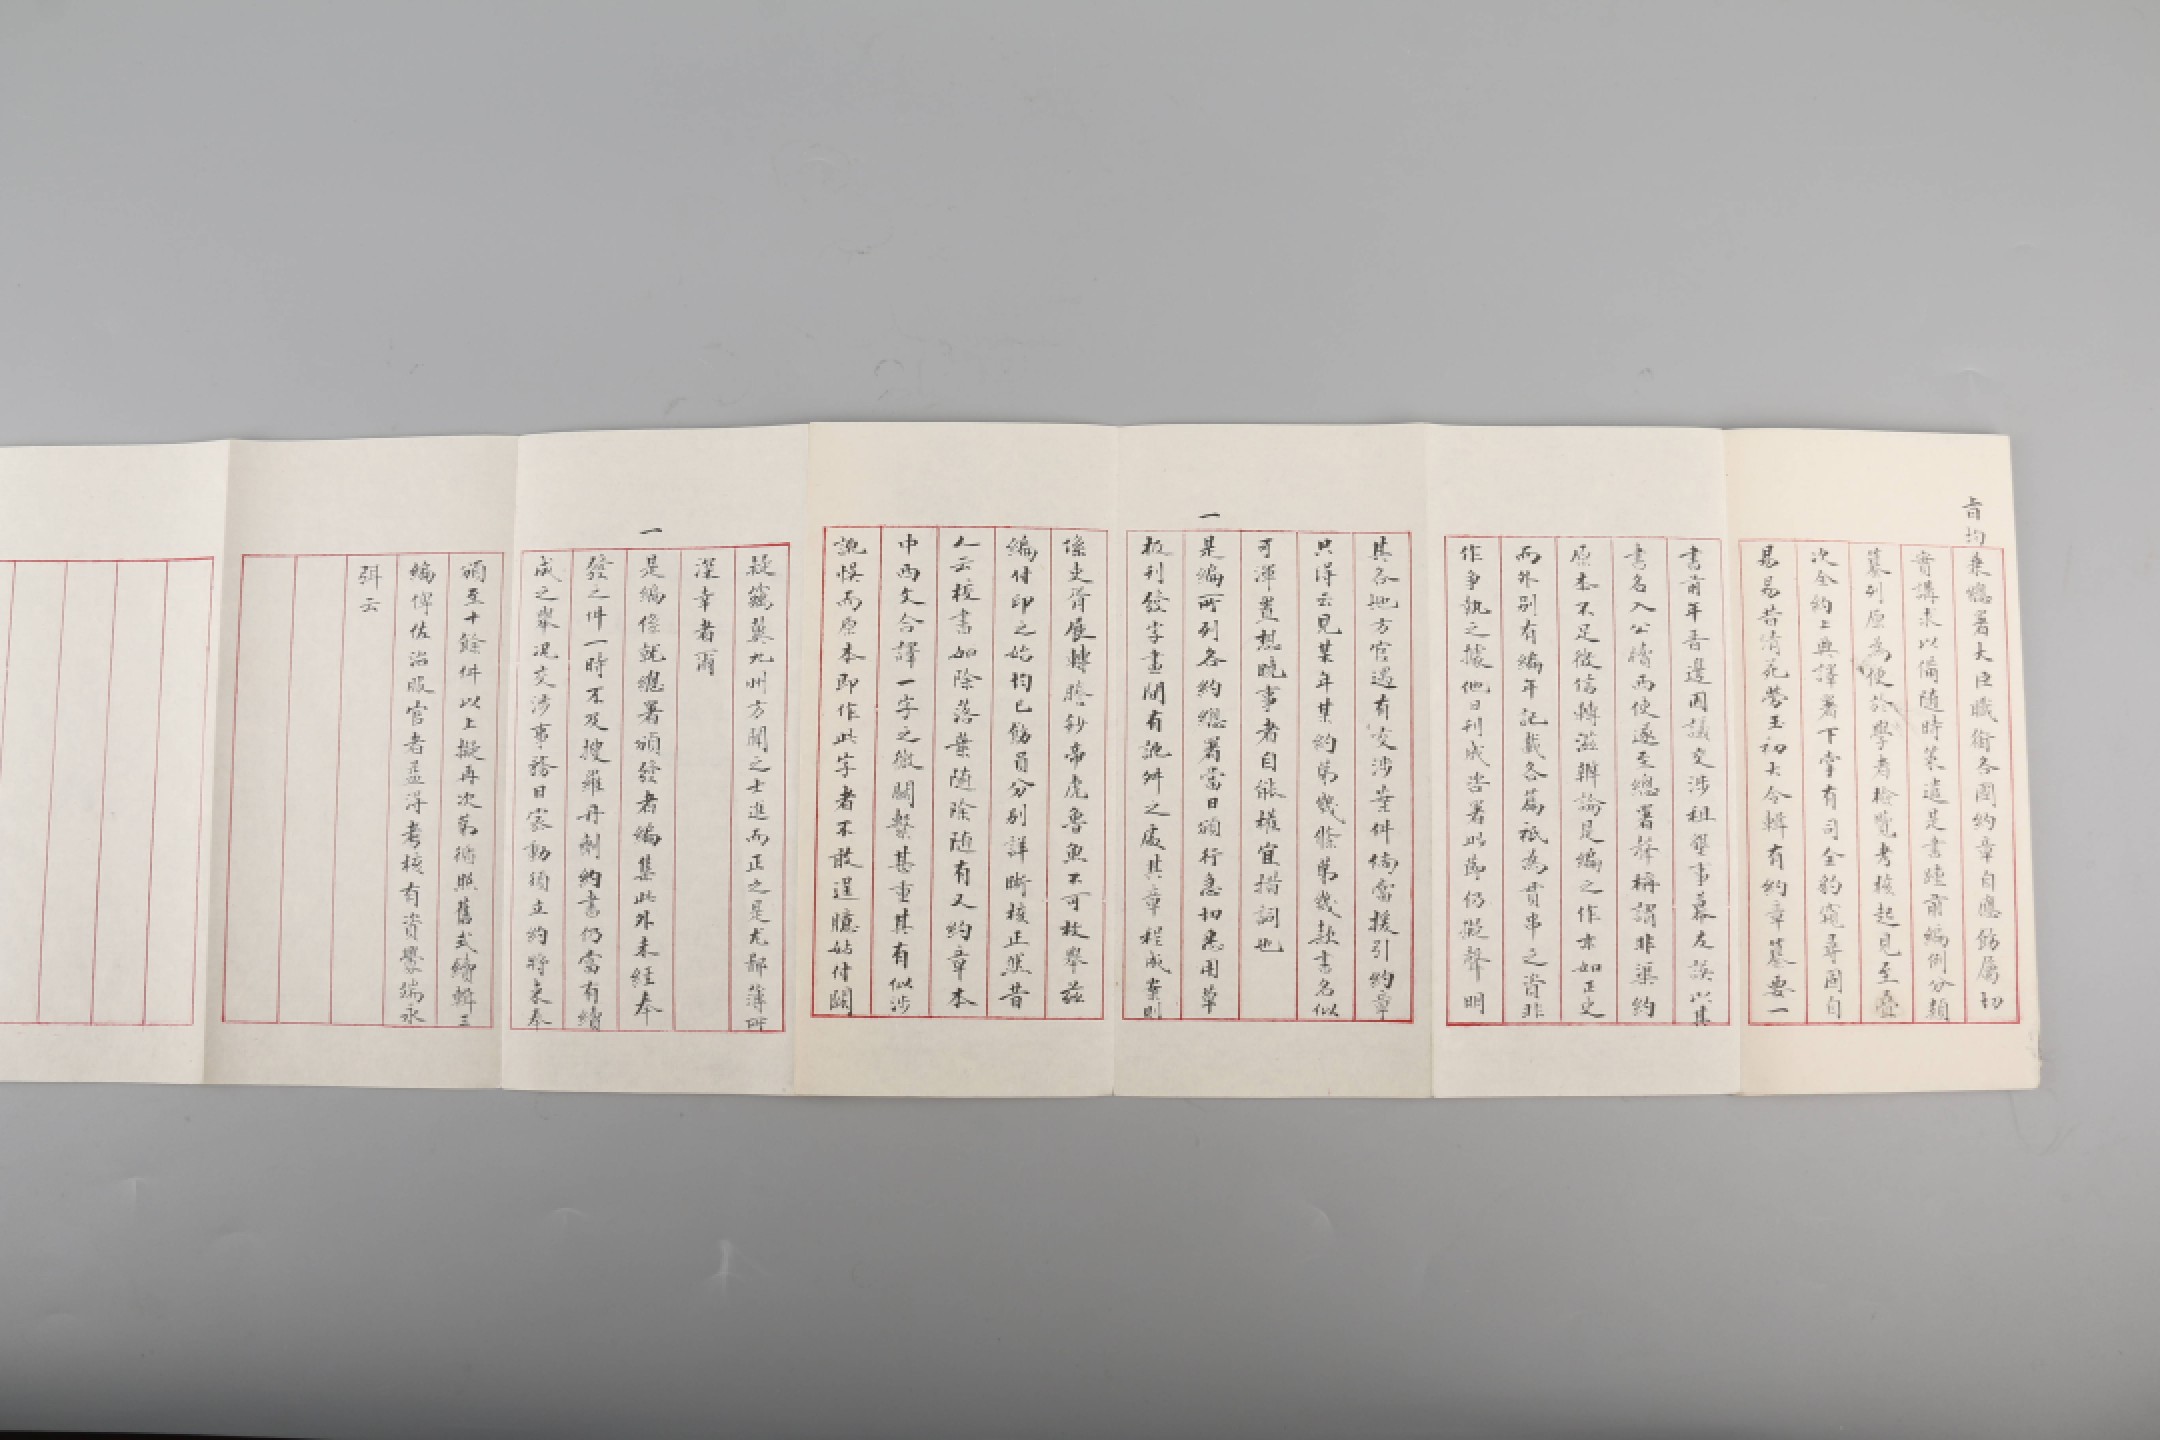 旨均乗總署大臣職銜各國約章自應飭屬切
實講求以備隨時策遣是書踵前編例分類
纂列原為便於學者檢覽考核起見至疊
次全約上典譯署下掌有司全豹窺尋固自
易易昔清苑勞玉初大令輯有約章纂要一
書前年吾邊因議交涉租墾事幕友誤以其
書名入公牘而使遂至總署聲稱謂非渠約
原本不足徵信轉滋辯論是編之作亦如正史
而外別有編年記載各篇祇為貫串之資非
作爭執之據他日刊成咨署此節仍擬聲明
其各地方官遇有交涉案件倘當援引約章
只得云見某年某約第幾條第幾款書名似
可渾置想曉事者自能權宜措詞也
一
是編所列各約總署當日頒行急切悉用草
板刊發字畫間有訛舛之處其章程成案則
係吏胥展轉謄鈔帝虎魯魚不可枚舉茲
編付印之始均已飭員分別詳晰核正然昔
人云校書如除落葉隨除隨有又約章本
中西文合譯一字之微關繫甚重其有似涉
訛悞而原本即作此字者不敢逞臆妄付闕
疑竊冀九州方聞之士進而正之是尤鄙薄所
深幸者爾
一
是編僅就總署頒發者編集此外未經奉
發之件一時不及搜羅再劑約書仍當有續
成之舉況交涉事務日寖動須立約將來奉
頒至十餘件以上擬再次第循照舊式續輯三
編俾佐治服官者盖得考核有資釁端永
弭云